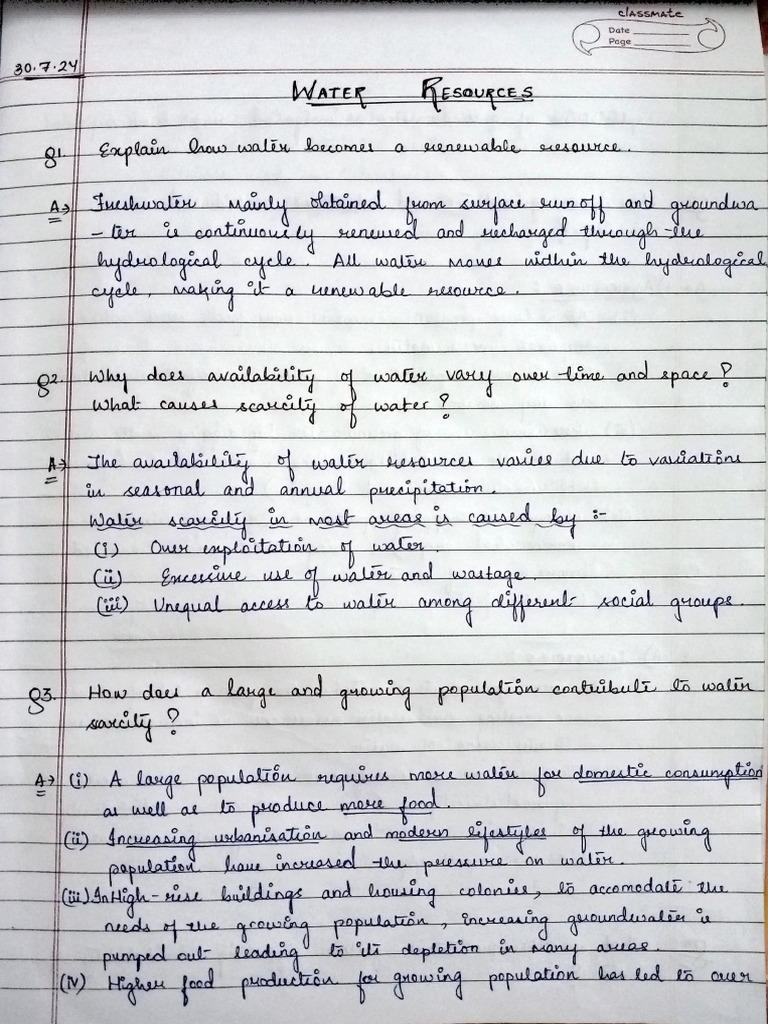 classmate
Date
Page
30.7.24
WATER RESOURCES
Q1. Explain how water becomes a renewable resource.
A→ Freshwater mainly obtained from surface run off and groundwa
-ter is continuously renewed and recharged through the
hydrological cycle. All water moves within the hydrological
cycle, making it a renewable resource.
Q2. Why does availability of water vary over time and space?
What causes scarcity of water?
A→ The availability of water resources varies due to variations
in seasonal and annual precipitation.
Water scarcity in most areas is caused by :-
(i) Over exploitation of water.
(ii) Excessive use of water and wastage.
(iii) Unequal access to water among different social groups.
Q3. How does a large and growing population contribute to water
sarcity?
A→ (i) A large population requires more water for domestic consumption
as well as to produce more food.
(ii) Increasing urbanisation and modern lifestyles of the growing
population have increased the pressure on water.
(iii) In High-rise buildings and housing colonies, to accomodate the
needs of the growing population, increasing groundwater is
pumped out leading to its depletion in many areas.
(iv) Higher food production for growing population has led to over